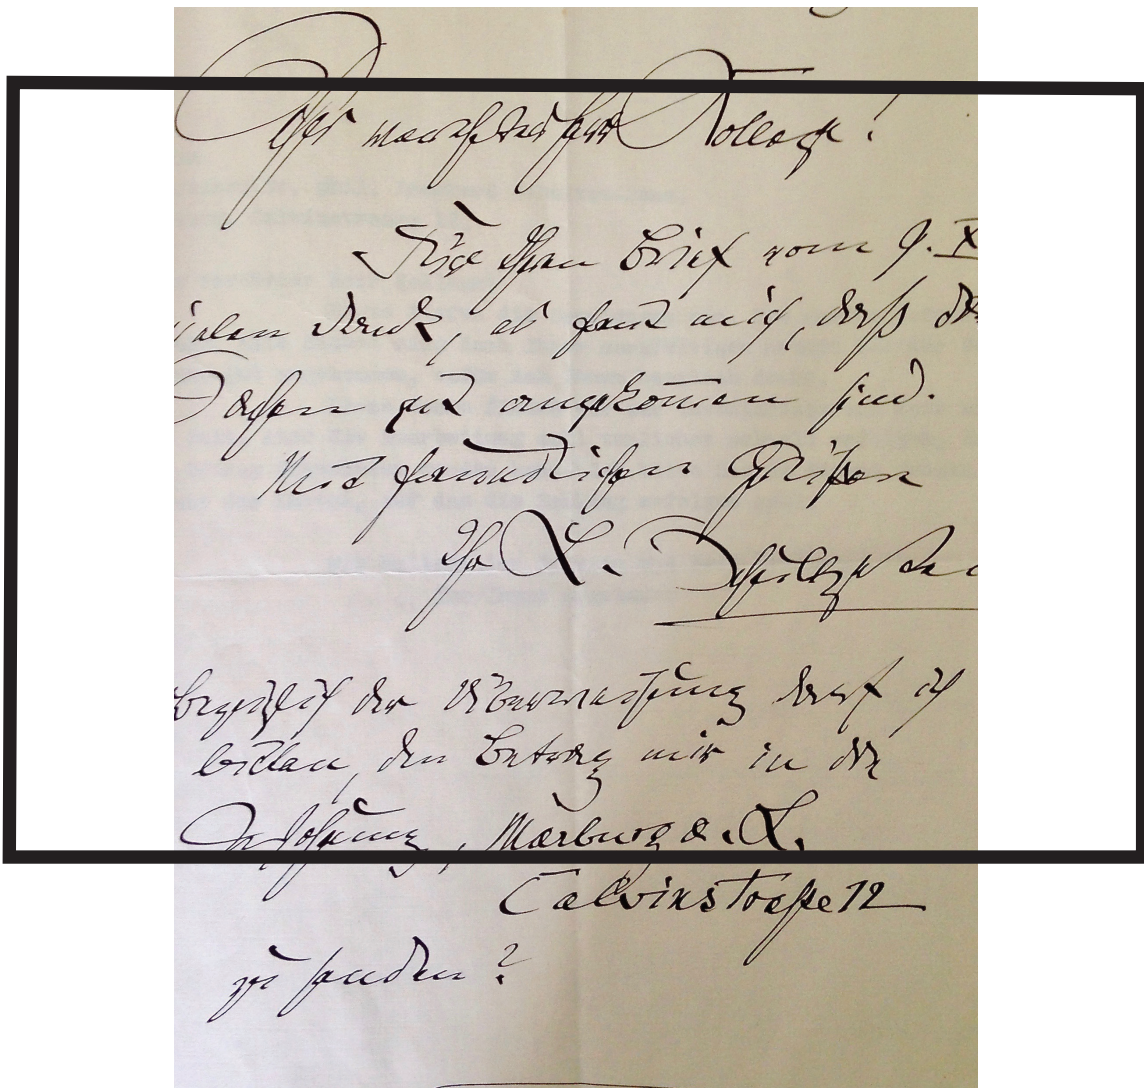 Sehr verehrter Herr Kollege!
Für Ihren Brief vom 9. X
vielen Dank, es freut mich, daß die
Sachen gut angekommen sind.
Mit freundlichen Grüßen
Ihr L.
Bezüglich der Überweisung darf ich
bitten, den Betrag mir in die
Wohnung, Marburg a. L.
Calvinstraße 12
zu senden?